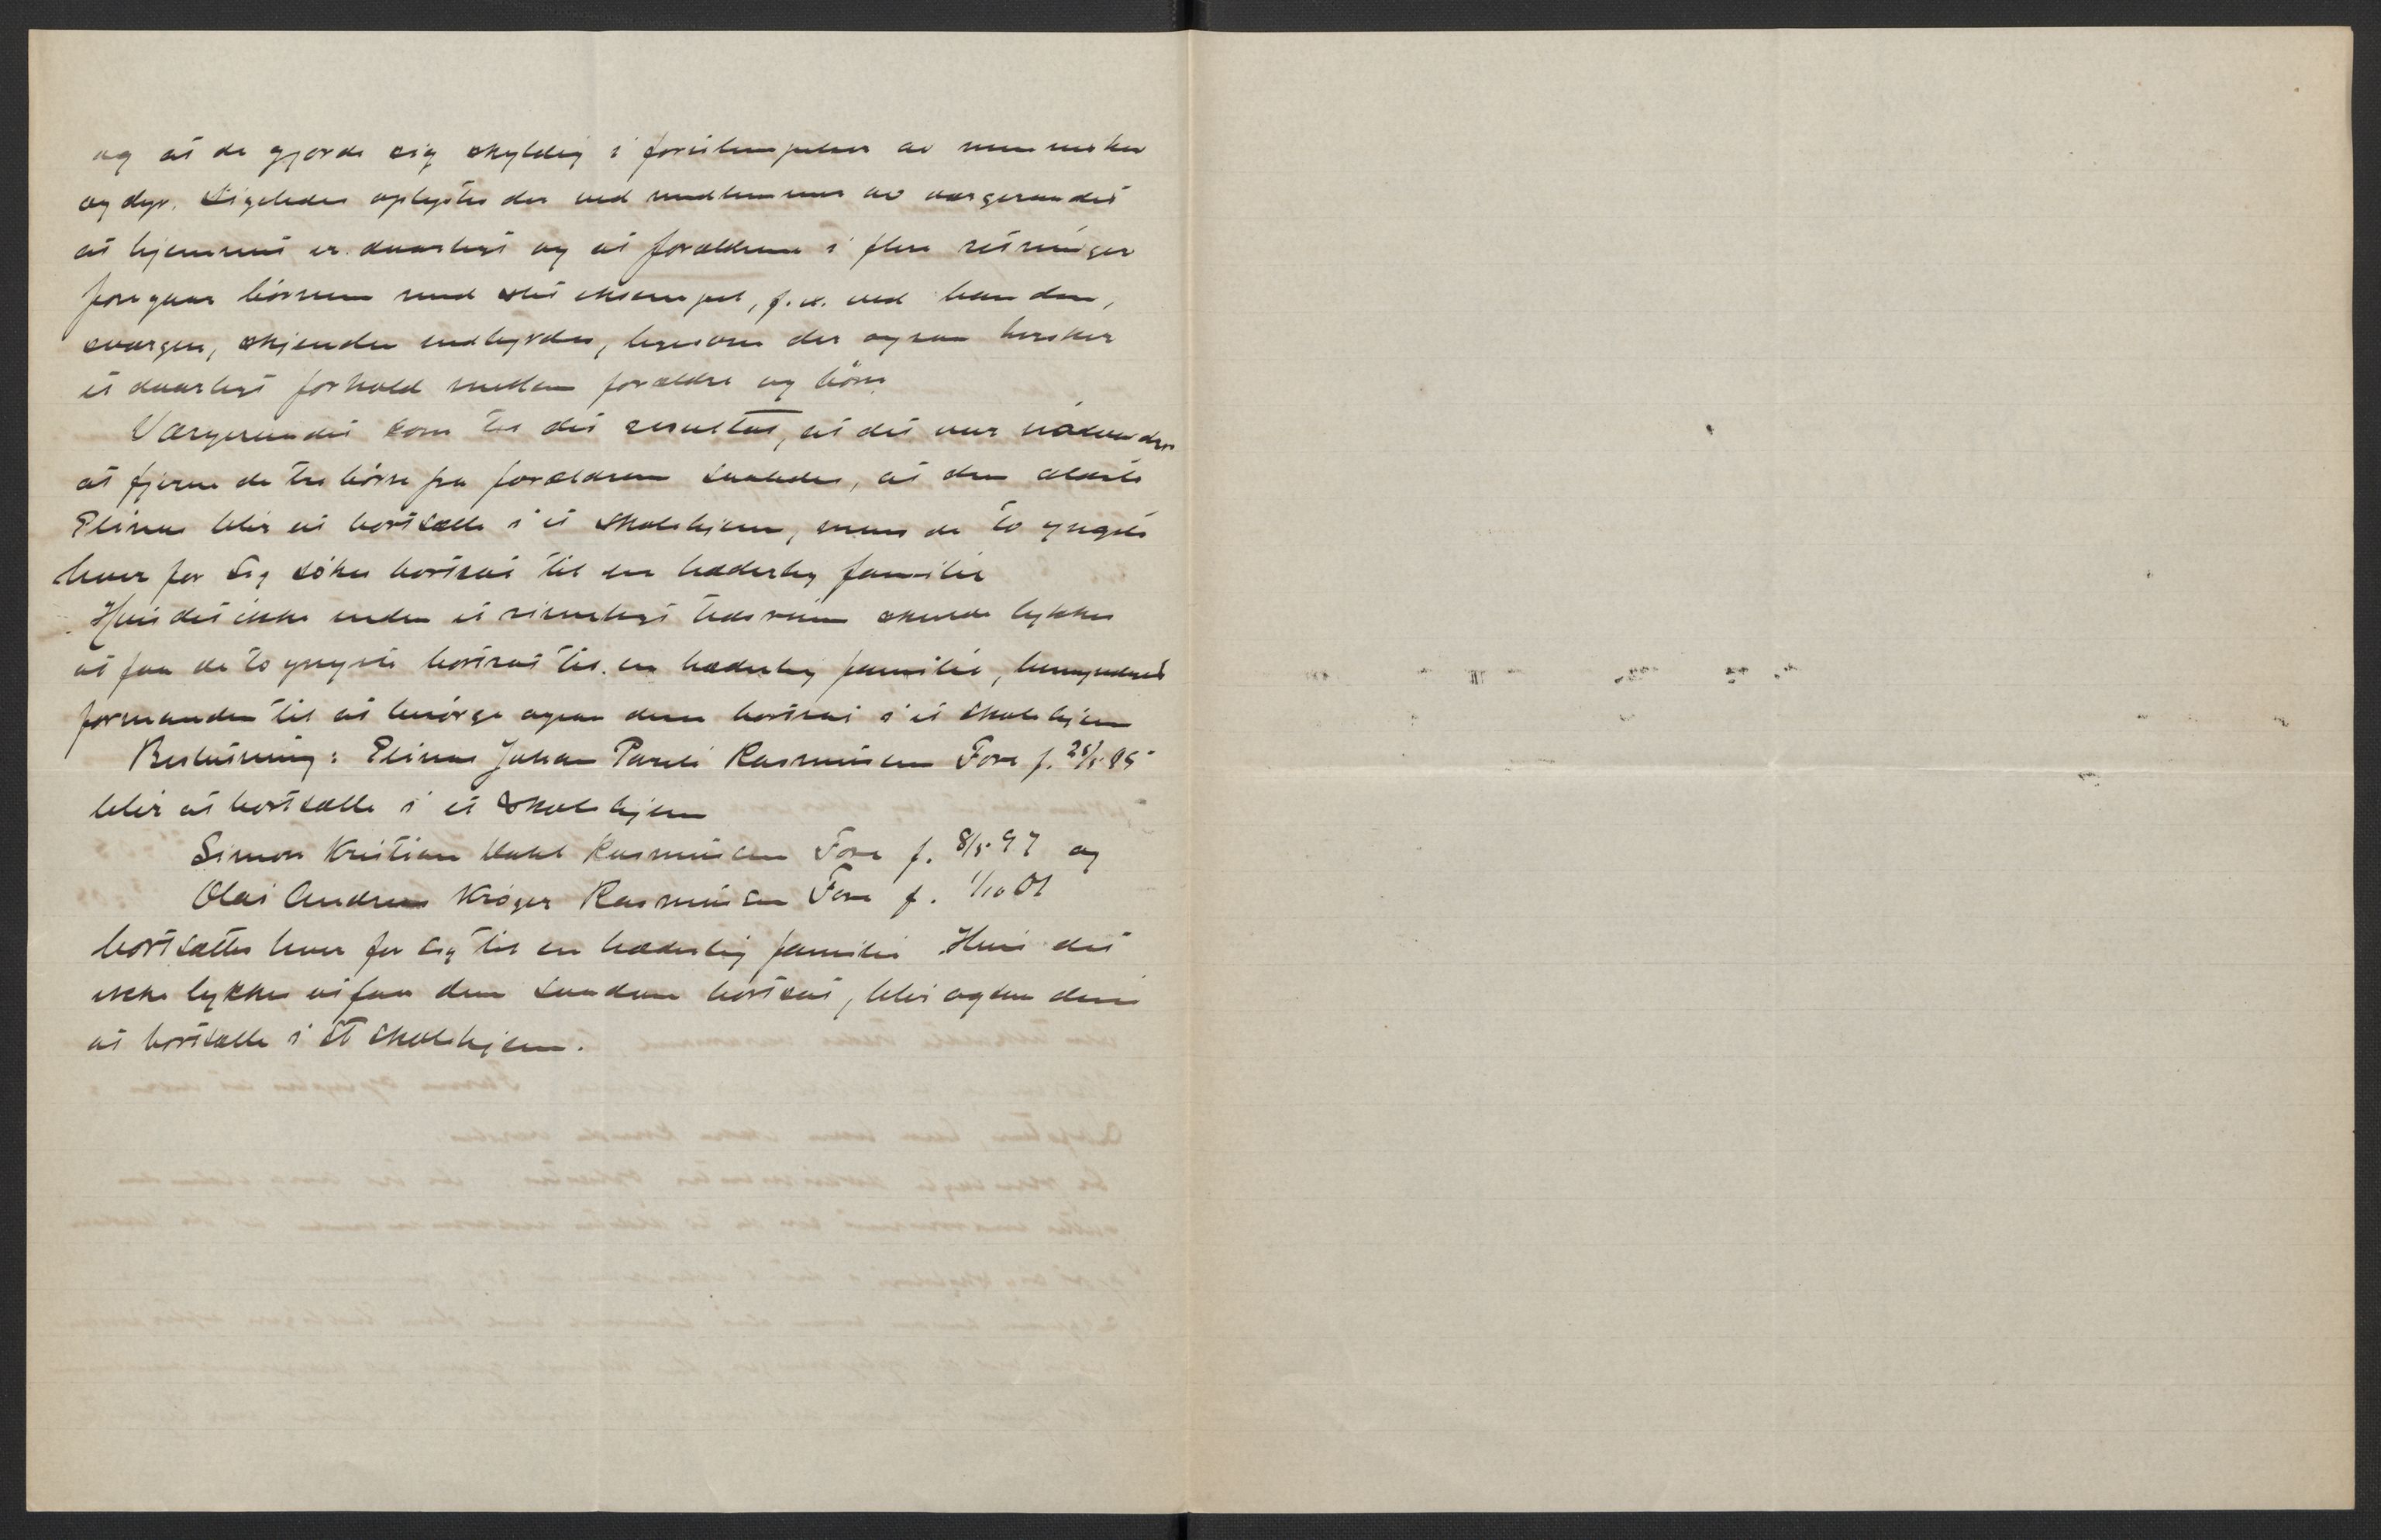 og at de gjorde sig skyldig i forulempelser av mennesker
og dyr. Ligeledes oplystes der ved medlemmer av vergeraadet
at hjemmet er daarligt og at forældrene i flere retninger
foregaar börnene med slet eksempel, f.x. ved banden,
sværgen, skjenden indbyrdes, ligesom der ogsaa hersker
et daarligt forhold mellem forældre og börn.
Værgeraadet kom til det resultat, at det var nödvendig
at fjerne de tre börn fra forældrene saaledes, at den ældste
Elinus blir at bortsætte i et skolehjem, mens de to yngste
hver for sig sökes bortsat til en hæderlig familie
Hvis det ikke inden et rimeligt tidsrum skulde lykkes
at faa de to yngste bortsat til en hæderlig familie, bemyndiges
formanden til at besörge ogsaa dem bortsat i et skolehjem
Beslutning: Elinus Johan Pareli Rasmussen Fore f. 25/5 95
blir at bortsætte i et skolehjem
Simon Kristian Rasmussen Fore f. 8/5 97 og
Olai Andreas Kröger Rasmussen Fore f. 1/10 01
bortsættes hver for sig til en hæderlig familie. Hvis det
ikke lykkes at faa dem saadan bortsat, blir ogsaa dem
at bortsætte i et skolehjem.